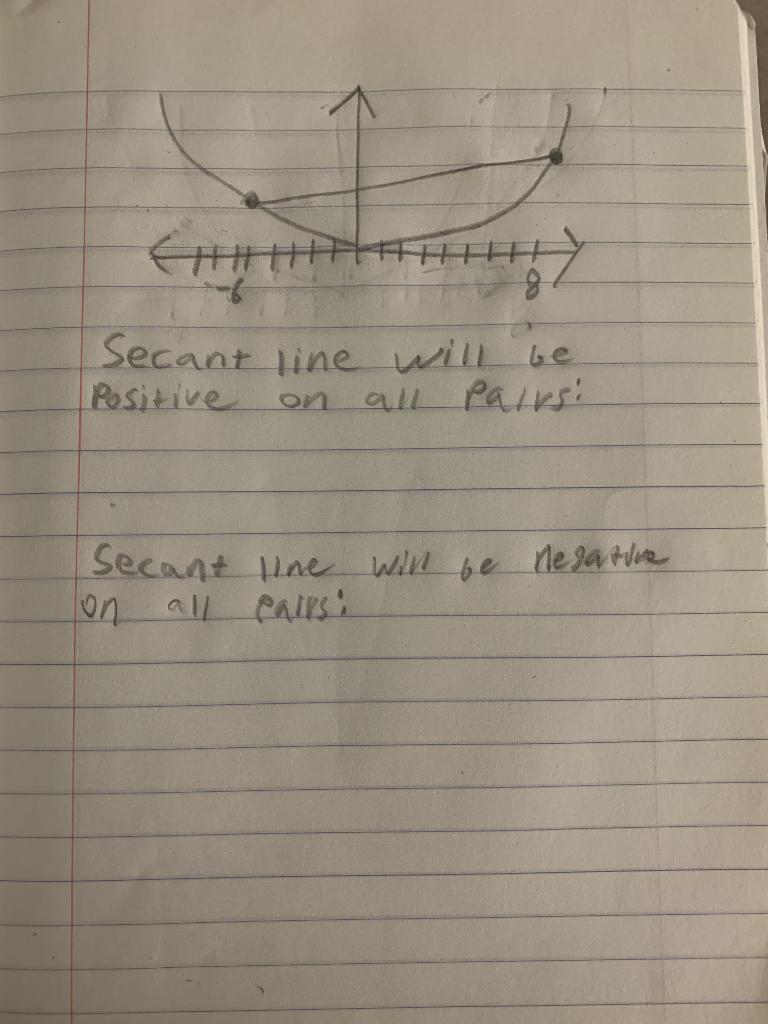 -6
8
Secant line will be
Positive on all Pairs:
Secant line will be negative
on all pairs: